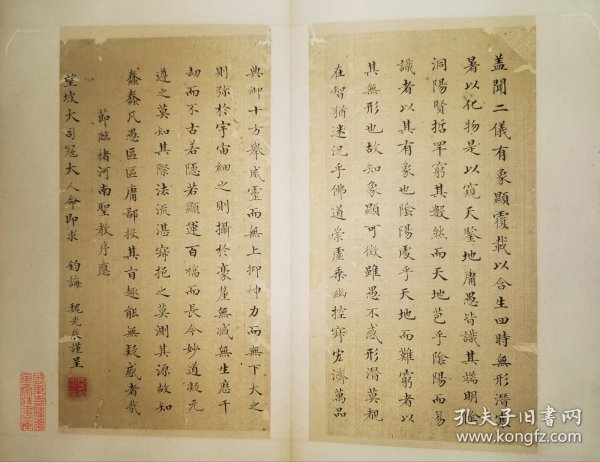 蓋聞二儀有象顯覆載以含生四時無形潛寒
暑以化物是以窺天鑒地庸愚皆識其端明陰
洞陽賢哲罕窮其數然而天地苞乎陰陽而易
識者以其有象也陰陽處乎天地而難窮者以
其無形也故知象顯可徵雖愚不惑形潛莫覩
在智猶迷況乎佛道崇虛乘幽控寂宏濟萬品
典御十方舉威靈而無上抑神力而無下大之
則彌於宇宙細之則攝於豪釐無滅無生歷千
劫而不古若隱若顯運百福而長今妙道凝元
遵之莫知其際法流湛寂挹之莫測其源故知
蠢蠢凡愚區區庸鄙投其旨趣能無疑惑者哉
節臨褚河南聖教序應
望坡大司寇大人命即求 鈞誨 魏元烺謹呈
孔夫子旧书网
www.kongfz.com